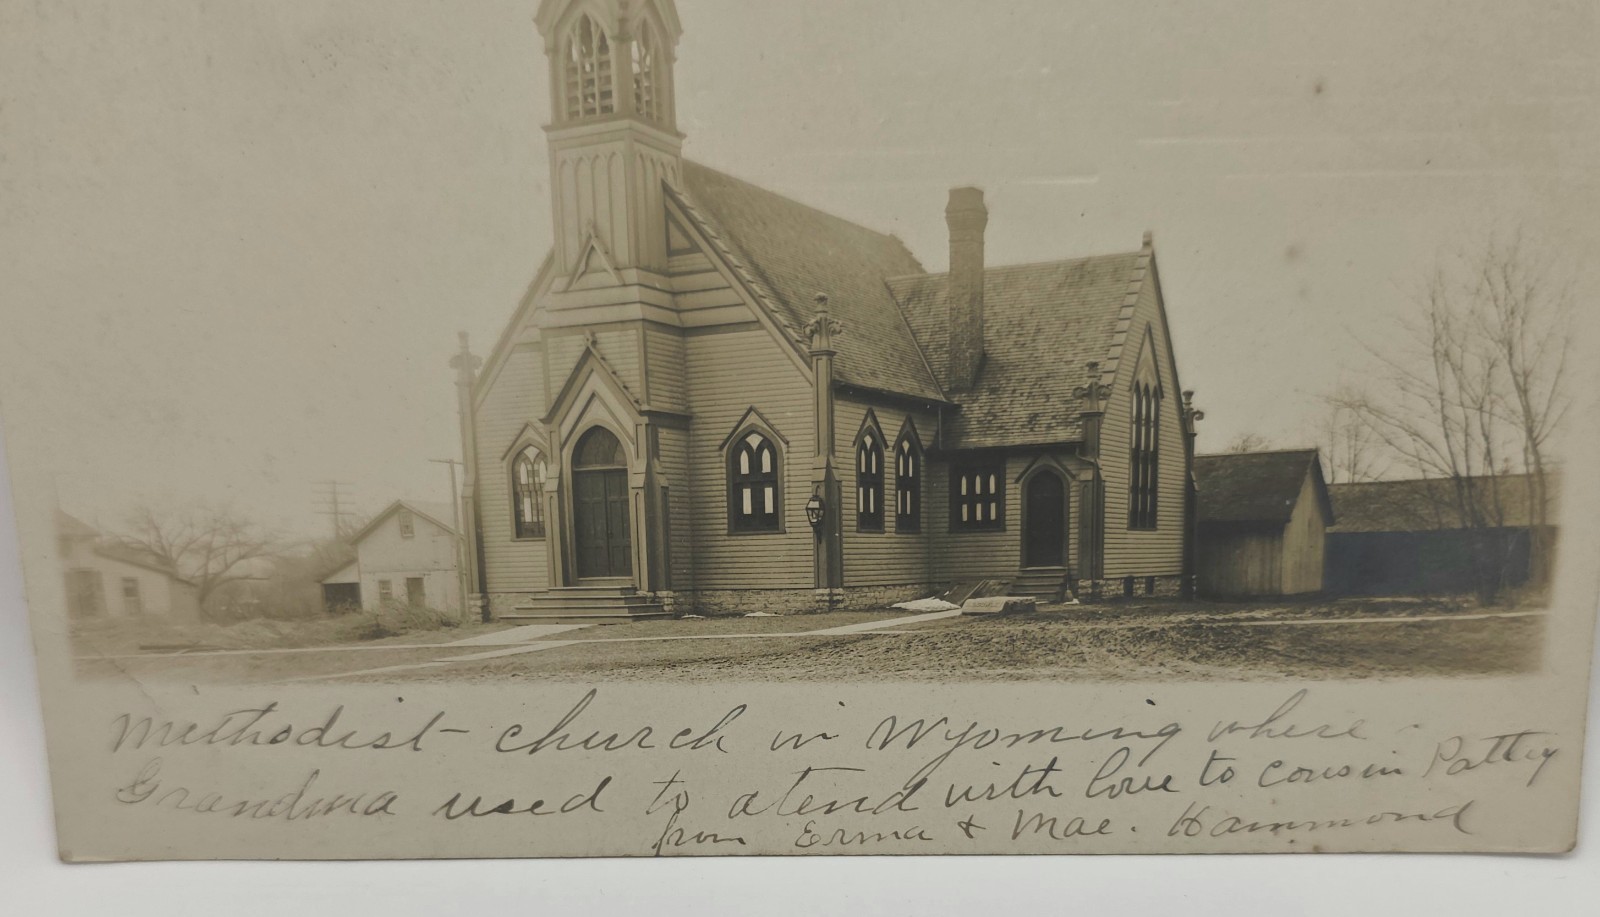 Methodist church in Wyoming where
Grandma used to atend with love to cousin Pattey
from Erma & Mae. Hammond